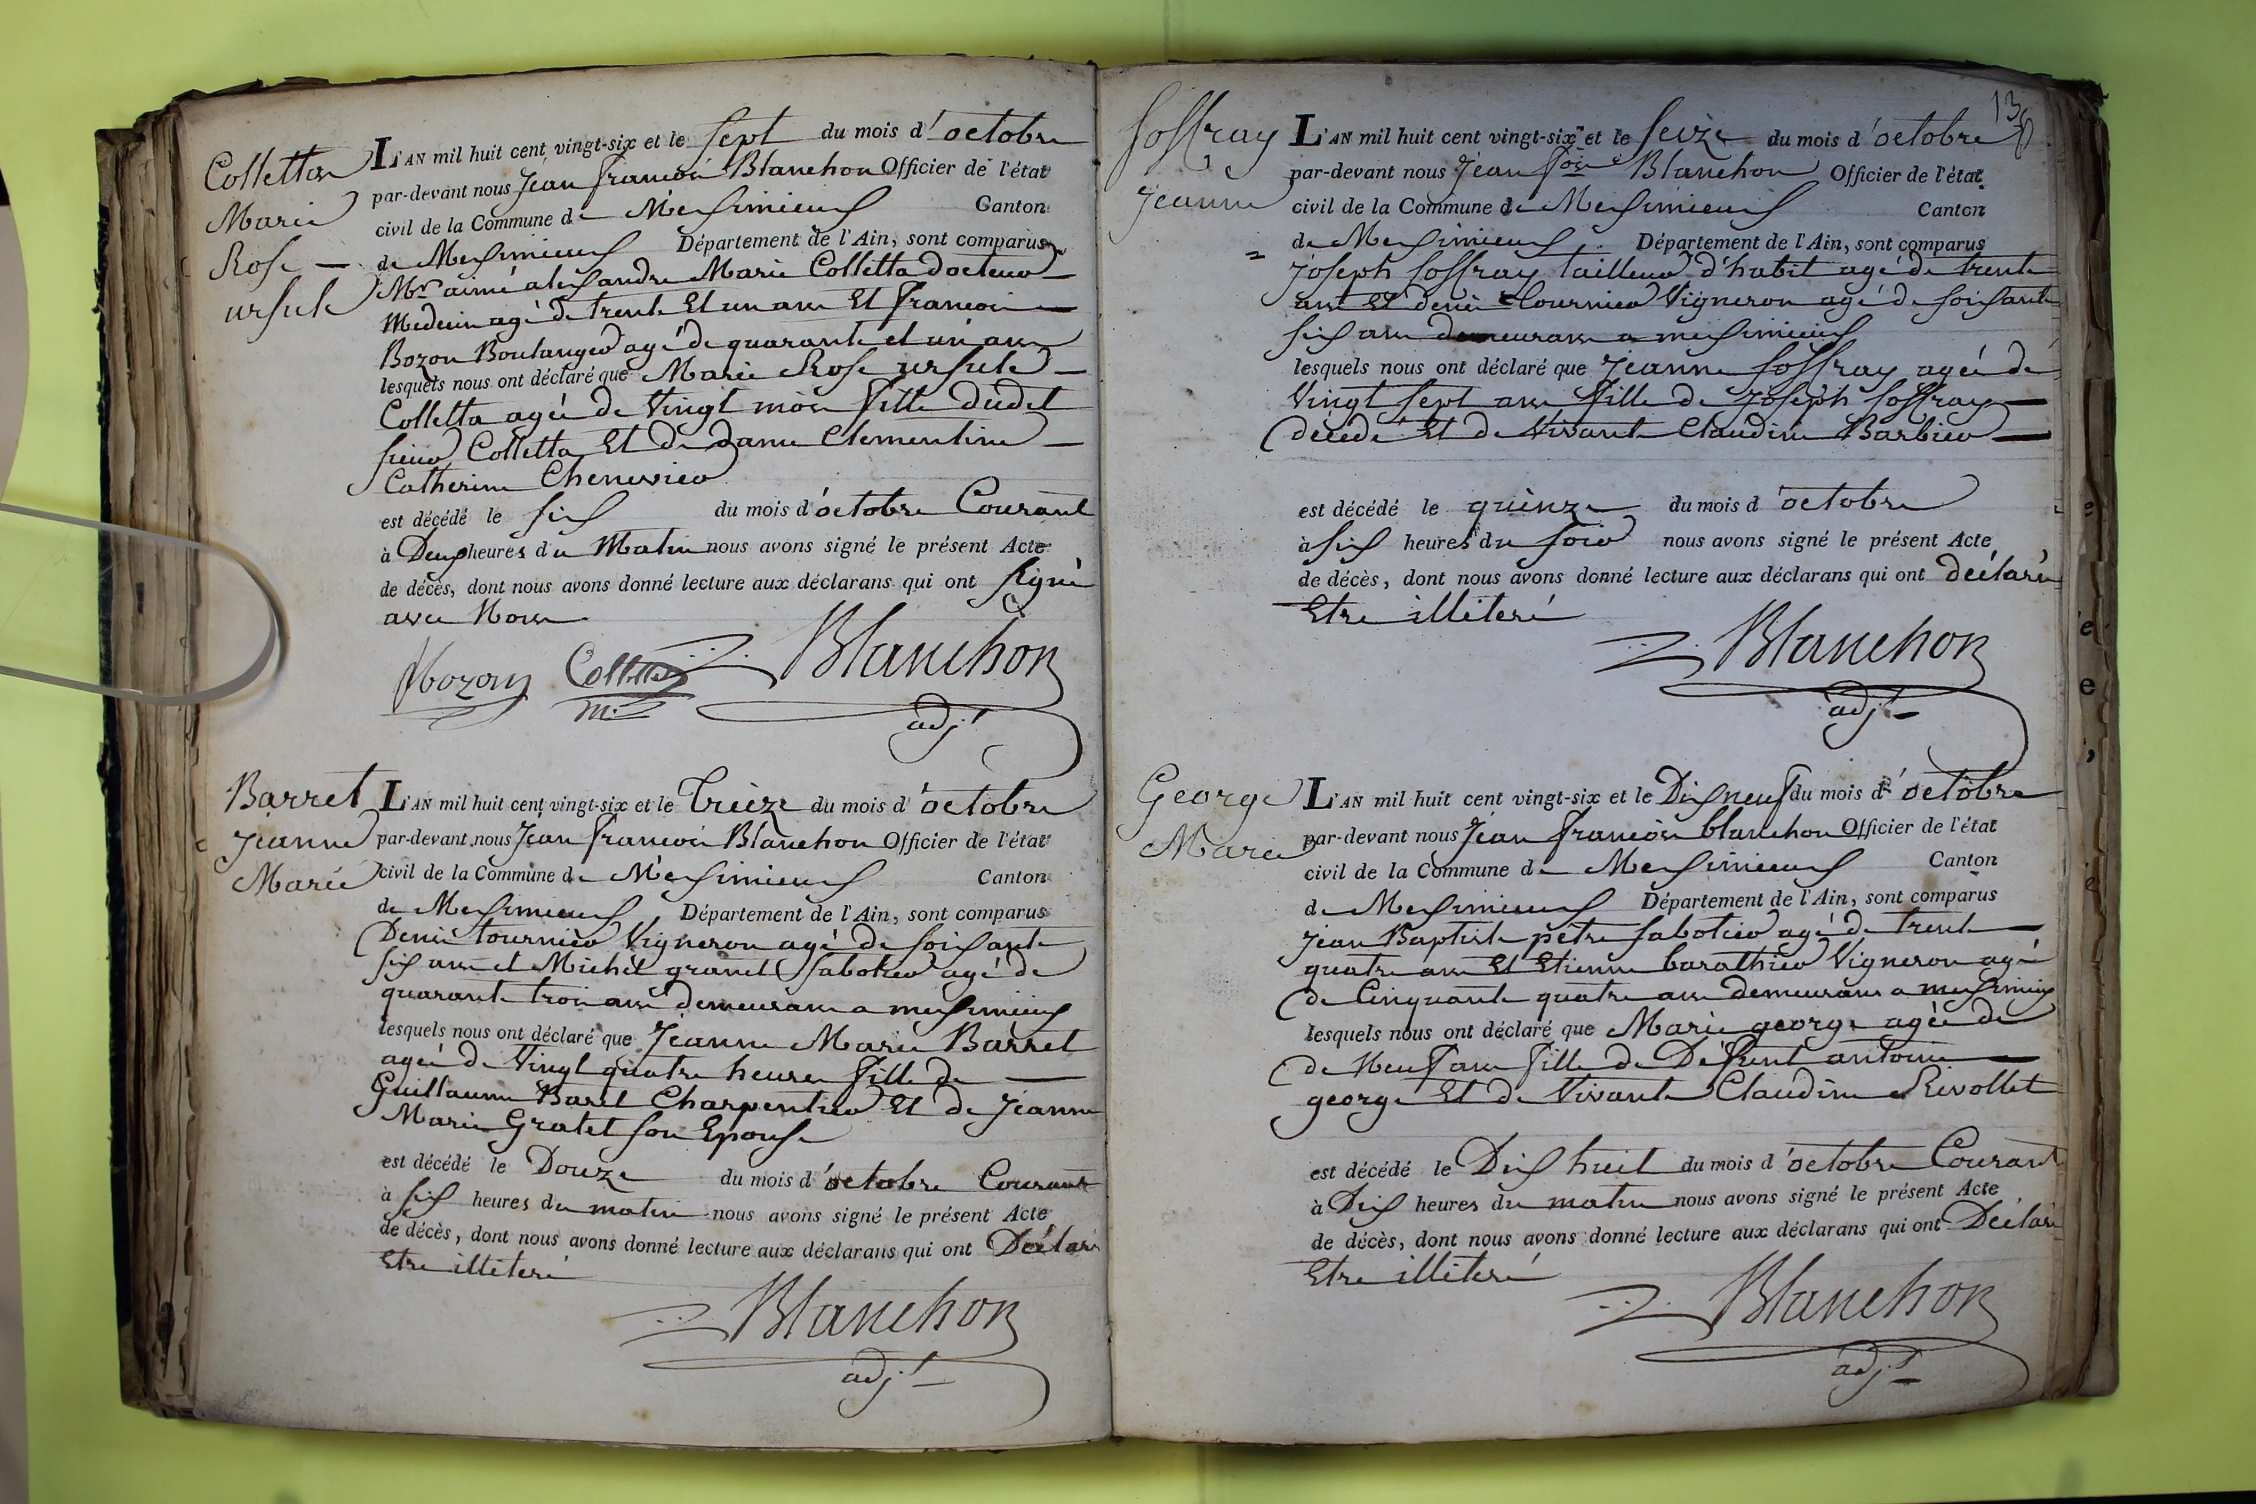 Colletta
Marie
Rose —
ursule
L'AN mil huit cent vingt-six et le sept du mois d'octobre
par-devant nous Jean francois Blanchon Officier de l'état
civil de la Commune de Messimieux Canton
de Messimieux Département de l'Ain, sont comparus
Mr aimé alexandre Marie Colletta docteur
Medecin agé de trente Et un ans Et francois
Bozon Boulanger agé de quarante et un ans
lesquels nous ont déclaré que Marie Rose ursule —
Colletta agée de vingt mois fille dudet
sieur Colletta Et de dame Clementine —
Catherine Chenevier
est décédé le six du mois d'octobre Courant
à Deux heures du Matin nous avons signé le présent Acte
de décès, dont nous avons donné lecture aux déclarans qui ont signé
avec Nous
Bozon Colletta Blanchon
adjt
Barret
Jeanne
Marie
L'AN mil huit cent vingt-six et le treize du mois d'octobre
par-devant nous Jean francois Blanchon Officier de l'état
civil de la Commune de Messimieux Canton
de Messimieux Département de l'Ain, sont comparus
Denis tournier Vigneron agé de soixante
six ans et Michel granet sabotier agé de
quarante trois ans demeurans a messimieux
lesquels nous ont déclaré que Jeanne Marie Barret
agée de Vingt quatre heures fille de —
Guillaume Baret Charpentier Et de Jeanne
Marie Gratet son Epouse
est décédé le Douze du mois d'octobre Courant
à six heures du matin nous avons signé le présent Acte
de décès, dont nous avons donné lecture aux déclarans qui ont Déclaré
Etre illiteré
Blanchon
adjt
13
Soffray
Jeanne
L'AN mil huit cent vingt-six et le seize du mois d'octobre
par-devant nous Jean fois Blanchon Officier de l'état
civil de la Commune de Messimieux Canton
de Messimieux Département de l'Ain, sont comparus
Joseph Soffray tailleur d'habit agé de trente
ans Et denis tournier Vigneron agé de soixante
six ans demeurans a messimieux
lesquels nous ont déclaré que Jeanne Soffray agée de
Vingt sept ans fille de Joseph Soffray —
décédé Et de Vivante Claudine Barbier —
est décédé le quinze du mois d'octobre
à six heures du soir nous avons signé le présent Acte
de décès, dont nous avons donné lecture aux déclarans qui ont déclaré
Etre illiteré
Blanchon
adjt
George
Marie
L'AN mil huit cent vingt-six et le Dix neuf du mois d'octobre
par-devant nous Jean francois blanchon Officier de l'état
civil de la Commune de Messimieux Canton
de Messimieux Département de l'Ain, sont comparus
Jean Baptiste petre sabotier agé de trente —
quatre ans Et Etienne barathier Vigneron agé
de Cinquante quatre ans demeurans a messimieux
lesquels nous ont déclaré que Marie george agée de
de Neuf ans fille de Défunt antoine —
george Et de Vivante Claudine Rivollet
est décédé le Dix huit du mois d'octobre Courant
à Dix heures du matin nous avons signé le présent Acte
de décès, dont nous avons donné lecture aux déclarans qui ont Déclaré
Etre illiteré
Blanchon
adjt